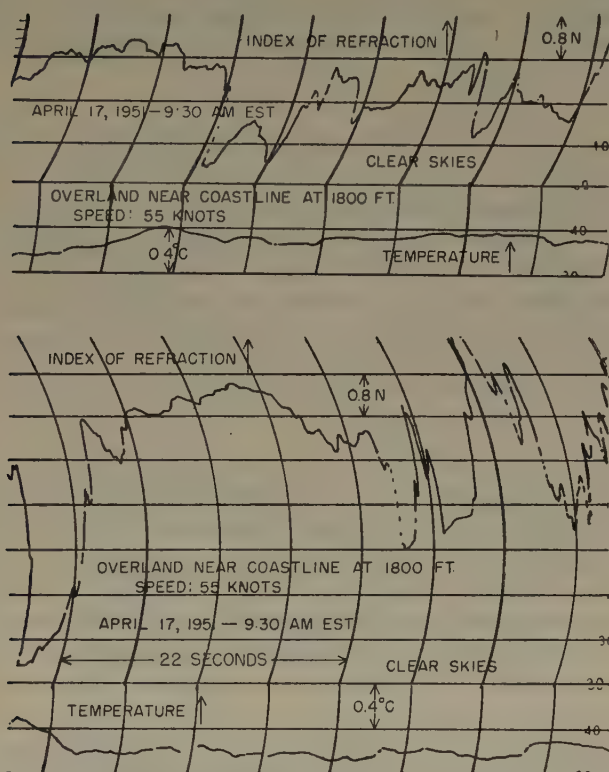 INDEX OF REFRACTION
0.8 N
APRIL 17, 1951 — 9:30 AM EST
CLEAR SKIES
OVERLAND NEAR COASTLINE AT 1800 FT.
SPEED: 55 KNOTS
40
0.4°C
TEMPERATURE
INDEX OF REFRACTION
0.8 N
OVERLAND NEAR COASTLINE AT 1800 FT.
SPEED: 55 KNOTS
APRIL 17, 1951 — 9.30 AM EST
22 SECONDS
CLEAR SKIES
TEMPERATURE
0.4°C
40